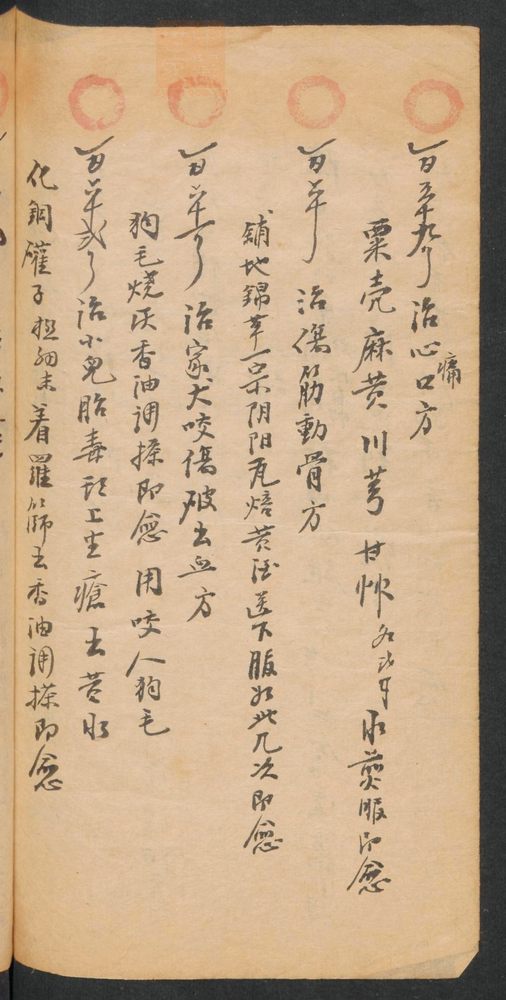 百五十九 治心口痛方
粟壳 麻黄 川芎 甘艸 各 水煎服即愈
百六十 治傷筋動骨方
鋪地錦草一 阴阳瓦焙黄 送下 服如此几次即愈
百六十一 治家犬咬傷破出血方
狗毛燒灰香油调搽即愈 用咬人狗毛
百六十弍 治小兒胎毒头上生瘡出黄水
化銅罐子 細末着羅篩去香油调搽即愈